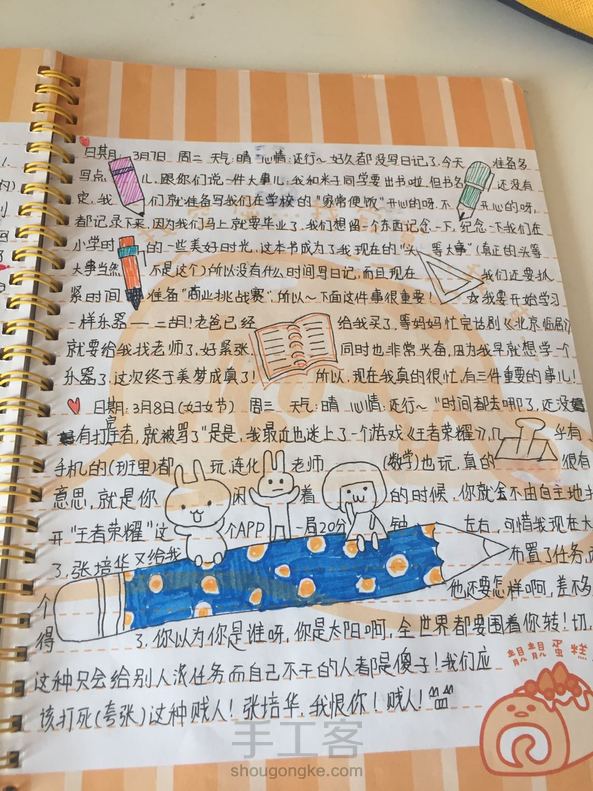 日期: 3月7日 周二 天气:晴 心情:还行~ 好久都没写日记了,今天 准备多
写点 儿,跟你们说一件大事儿:我和米子同学要出书啦,但书名 还没有
定,我 们就准备写我们在学校的“家常便饭”开心的呀,不 开心的呀,
都记录下来,因为我们马上就要毕业了,我们想留一个东西记念一下,纪念一下我们在
小学时 的一些美好时光,这本书成为了我现在的“头 等大事”(真正的头等
大事当然 不是这个)所以没有什么时间写日记,而且现在 我们还要抓
紧时间 准备“商业挑战赛”,所以~下面这件事很重要! ☆我要开始学习
一样乐器——二胡!老爸已经 给我买了,等妈妈忙完话剧《北京临居》
就要给我找老师了,好紧张, 同时也非常兴奋,因为我早就想学一个
乐器了,这次终于美梦成真了! 所以,现在我真的很忙,有三件重要的事儿!
日期: 3月8日(妇女节) 周三 天气:晴 心情:还行~ “时间都去哪了,还没
有打王者,就被骂了”是是,我最近也迷上了一个游戏《王者荣耀》,几 乎有
手机的(班里)都 玩,连化 老师 (数学)也玩,真的 很有
意思,就是你 闲 着 的时候,你就会不由自主地打
开“王者荣耀”这 个APP 一局20分 钟 左右,可惜我现在大
了,张培华又给我 布置了任务,而
个 他还要怎样啊,差不多
得 了,你以为你是谁呀,你是太阳啊,全世界都要围着你转!切,
这种只会给别人派任务而自己不干的人都是傻子!我们应
该打死(夸张)这种贱人!张培华,我恨你!贱人!
蛋糕
手工客
shougongke.com